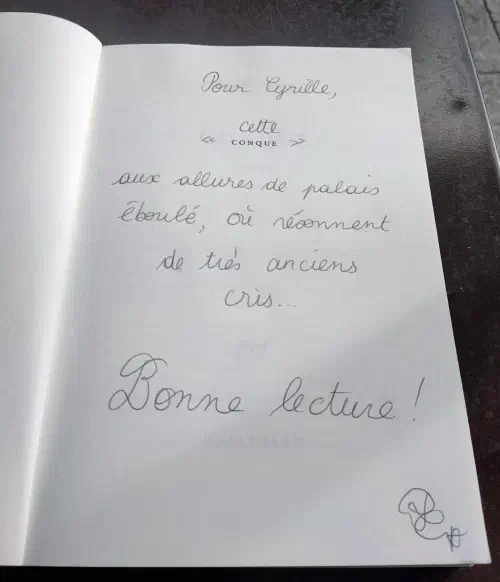 Pour Cyrille,
cette
« CONQUE »
aux allures de palais
éboulé, où résonnent
de très anciens
cris...
Bonne lecture !